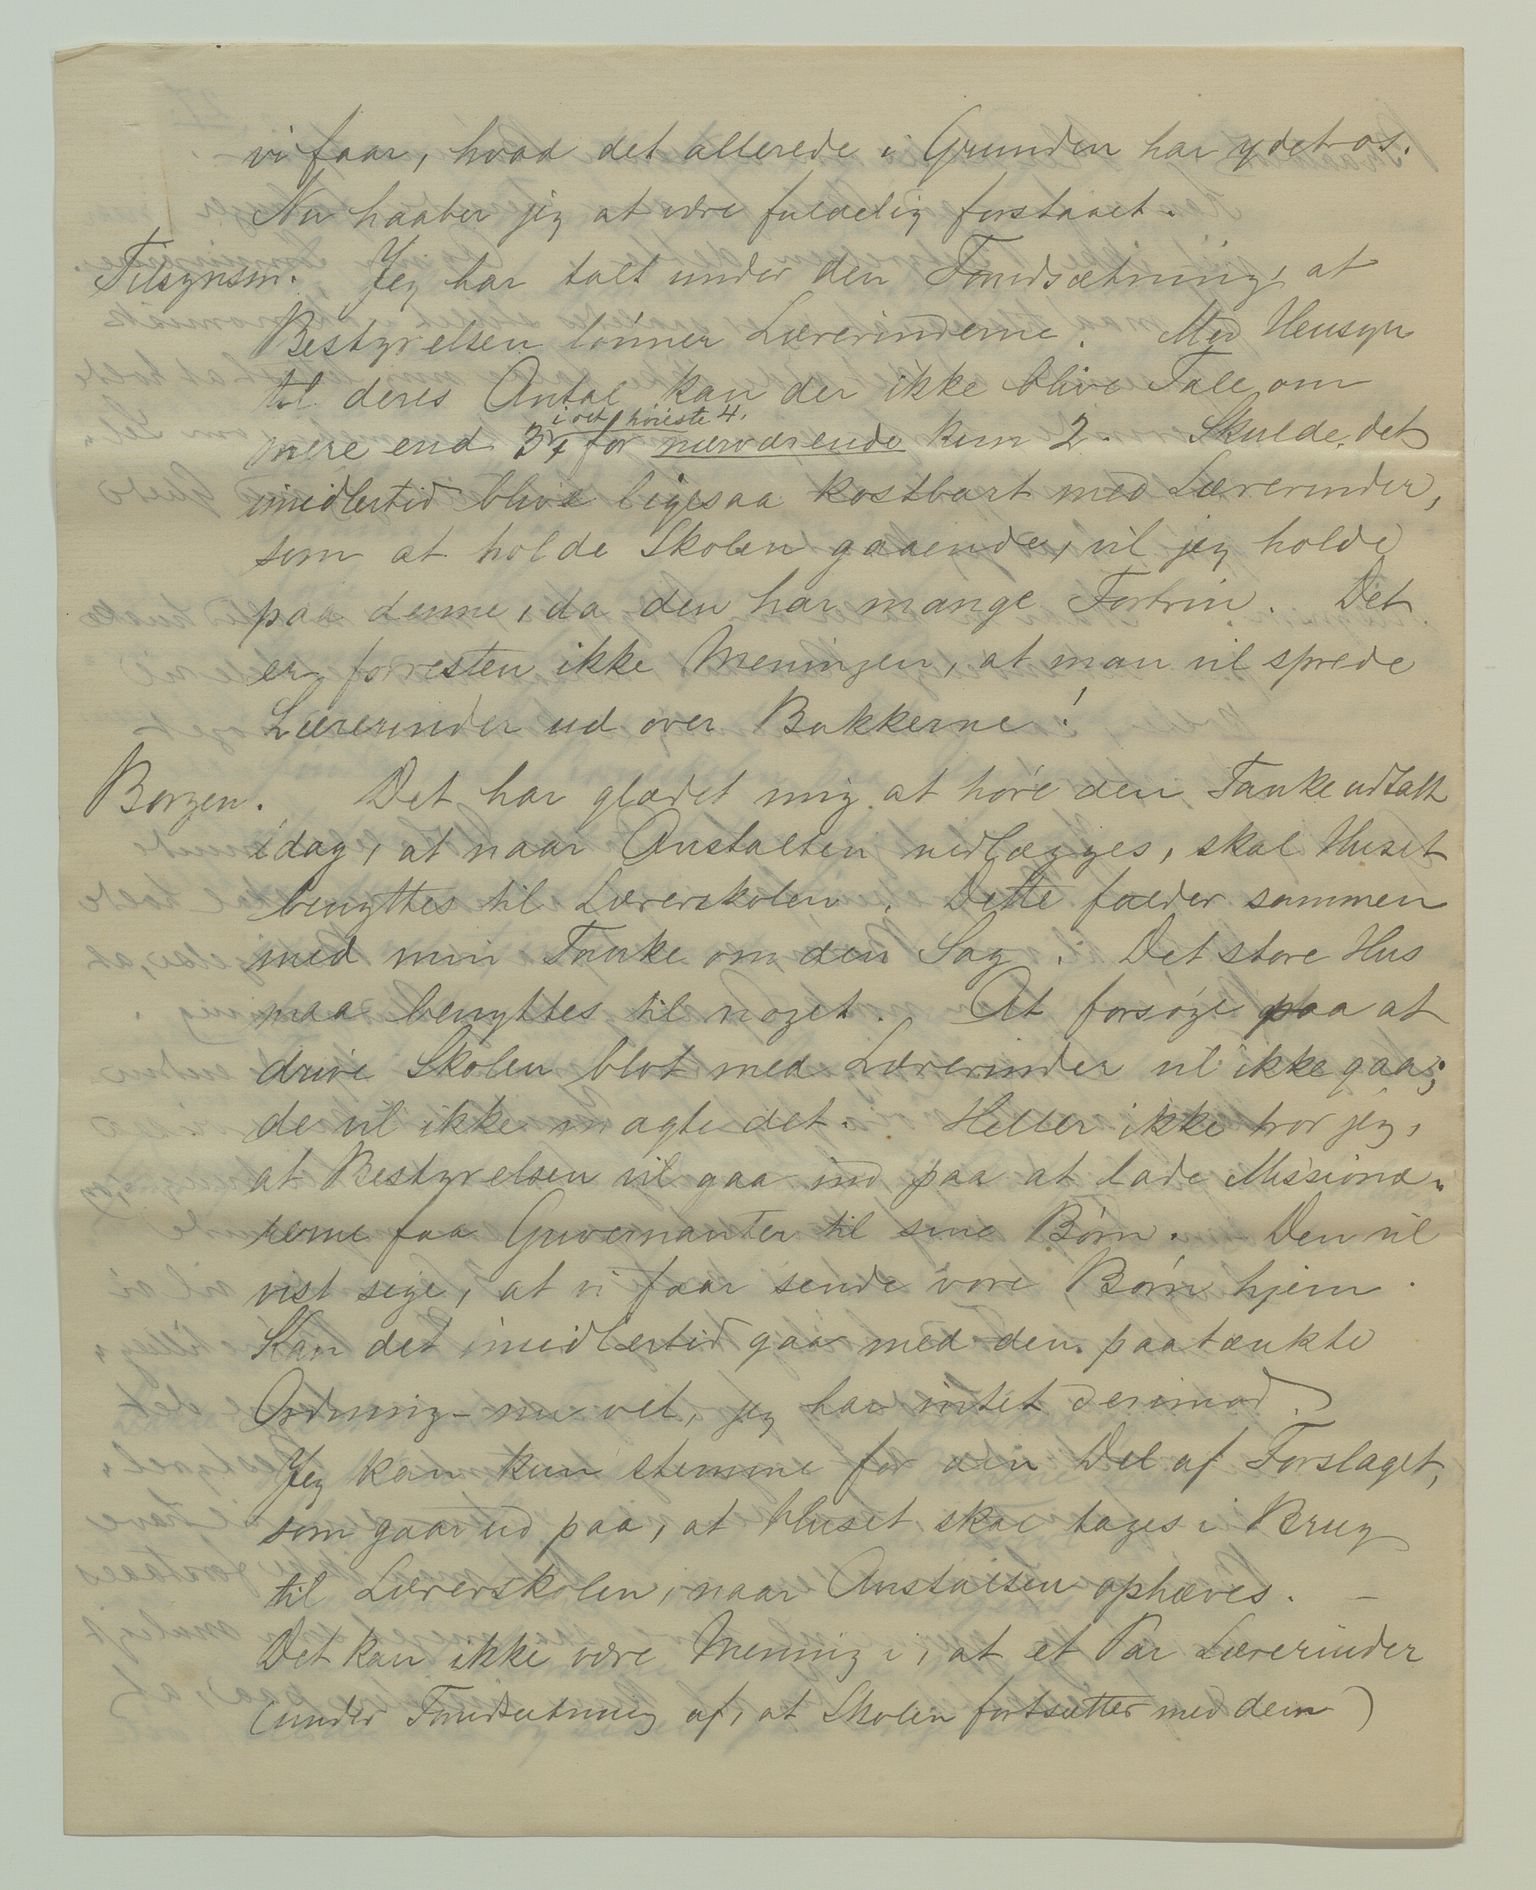 vi faar, hvad det allerede i Grunden har ydet os.
Nu haaber jeg at være fuldelig forstaaet.
Tilsynsm. Jeg har talt under den Forudsætning, at
Bestyrelsen lønner Lærerinderne. Med Hensyn
til deres Antal kan der ikke blive Tale om
i det høieste 4,
mere end 3 for nærværende kun 2. Skulde det
imidlertid blive ligesaa kostbart med Lærerinder,
som at holde Skolen gaaende, vil jeg holde
paa denne, da den har mange Fortrin. Det
er forresten ikke Meningen, at man vil sprede
Lærerinder ud over Bakkerne!
Borgen. Det har glædet mig at høre den Tanke udtalt
idag, at naar Anstalten nedlægges, skal Huset
benyttes til Lærerskolen. Dette falder sammen
med min Tanke om den Sag: Det store Hus
maa benyttes til noget. At forsøge paa at
drive Skolen blot med Lærerinder vil ikke gaa;
de vil ikke magte det. Heller ikke tror jeg,
at Bestyrelsen vil gaa ind paa at lade Missionæ-
rerne faa Guvernanter til sine Børn. Den vil
vist sige, at vi faar sende vore Børn hjem.
Kan det imidlertid gaa med den paatænkte
Ordning – nu vel, jeg har intet derimod.
Jeg kan kun stemme for den Del af Forslaget,
som gaar ud paa, at Huset skal tages i Brug
til Lærerskolen, naar Anstalten ophæves. –
Det kan ikke være Mening i, at et Par Lærerinder
(under Forudsætning af, at Skolen fortsætter med dem)